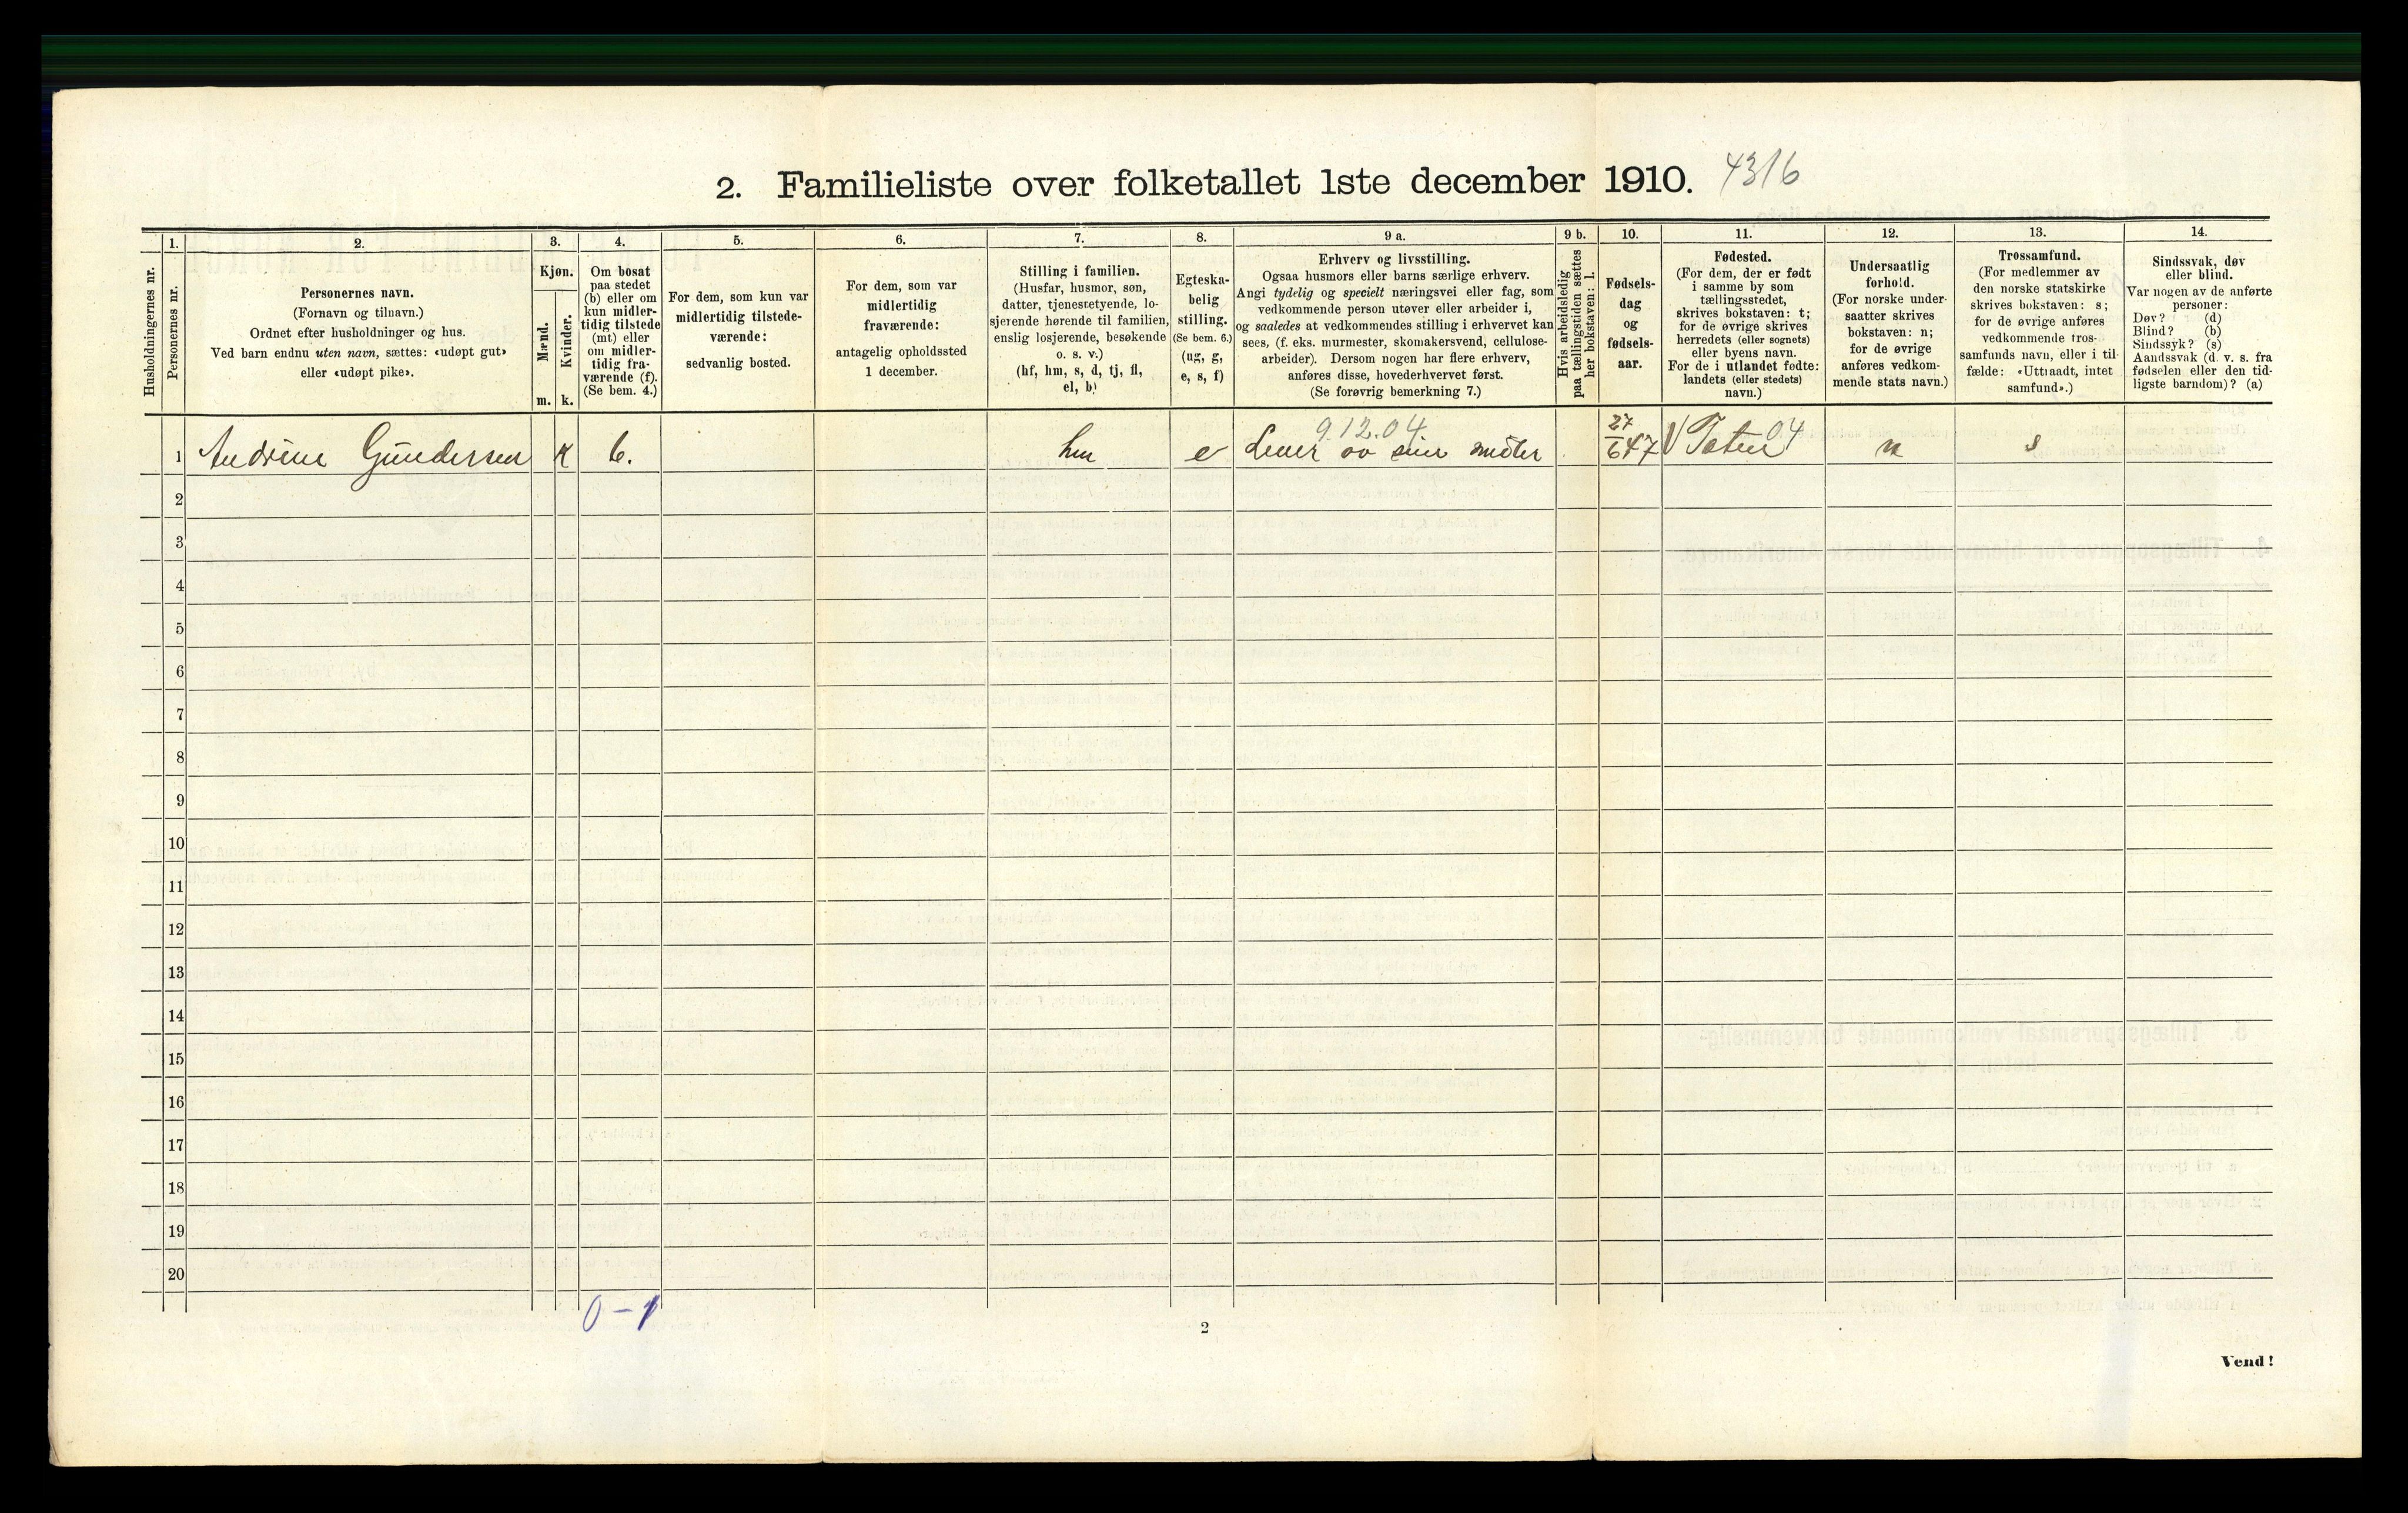 2. Familieliste over folketallet 1ste december 1910. 4316
Husholdningernes nr.
1.
Personernes nr.
2.
Personernes navn.
(Fornavn og tilnavn.)
Ordnet efter husholdninger og hus.
Ved barn endnu uten navn, sættes: «udøpt gut»
eller «udøpt pike».
3.
Kjøn.
Mænd.
Kvinder.
m. k.
4.
Om bosat
paa stedet
(b) eller om
kun midler-
tidig tilstede
(mt) eller
om midler-
tidig fra-
værende (f).
(Se bem. 4.)
5.
For dem, som kun var
midlertidig tilstede-
værende:
sedvanlig bosted.
6.
For dem, som var
midlertidig
fraværende:
antagelig opholdssted
1 december.
7.
Stilling i familien.
(Husfar, husmor, søn,
datter, tjenestetyende, lo-
sjerende hørende til familien,
enslig losjerende, besøkende
o. s. v.)
(hf, hm, s, d, tj, fl,
el, b)
8.
Egteska-
belig
stilling.
(Se bem. 6.)
(ug, g,
e, s, f)
9 a.
Erhverv og livsstilling.
Ogsaa husmors eller barns særlige erhverv.
Angi tydelig og specielt næringsvei eller fag, som
vedkommende person utøver eller arbeider i,
og saaledes at vedkommendes stilling i erhvervet kan
sees, (f. eks. murmester, skomakersvend, cellulose-
arbeider). Dersom nogen har flere erhverv,
anføres disse, hovederhvervet først.
(Se forøvrig bemerkning 7.)
9 b.
Hvis arbeidsledig
paa tællingstiden sættes
her bokstaven: l.
10.
Fødsels-
dag
og
fødsels-
aar.
11.
Fødested.
(For dem, der er født
i samme by som
tællingsstedet,
skrives bokstaven: t;
for de øvrige skrives
herredets (eller sognets)
eller byens navn.
For de i utlandet fødte:
landets (eller stedets)
navn.)
12.
Undersaatlig
forhold.
(For norske under-
saatter skrives
bokstaven: n;
for de øvrige
anføres vedkom-
mende stats navn.)
13.
Trossamfund.
(For medlemmer av
den norske statskirke
skrives bokstaven: s;
for de øvrige anføres
vedkommende tros-
samfunds navn, eller i til-
fælde: «Uttraadt, intet
samfund».)
14.
Sindssvak, døv
eller blind.
Var nogen av de anførte
personer:
Døv? (d)
Blind? (b)
Sindssyk? (s)
Aandssvak (d. v. s. fra
fødselen eller den tid-
ligste barndom)? (a)
9.12.04
1 Andrine Gundersen k b. hm e Lever av sine midler 27/6 47 V Toten 04 n s
2
3
4
5
6
7
8
9
10
11
12
13
14
15
16
17
18
19
20
0-1
2
Vend!